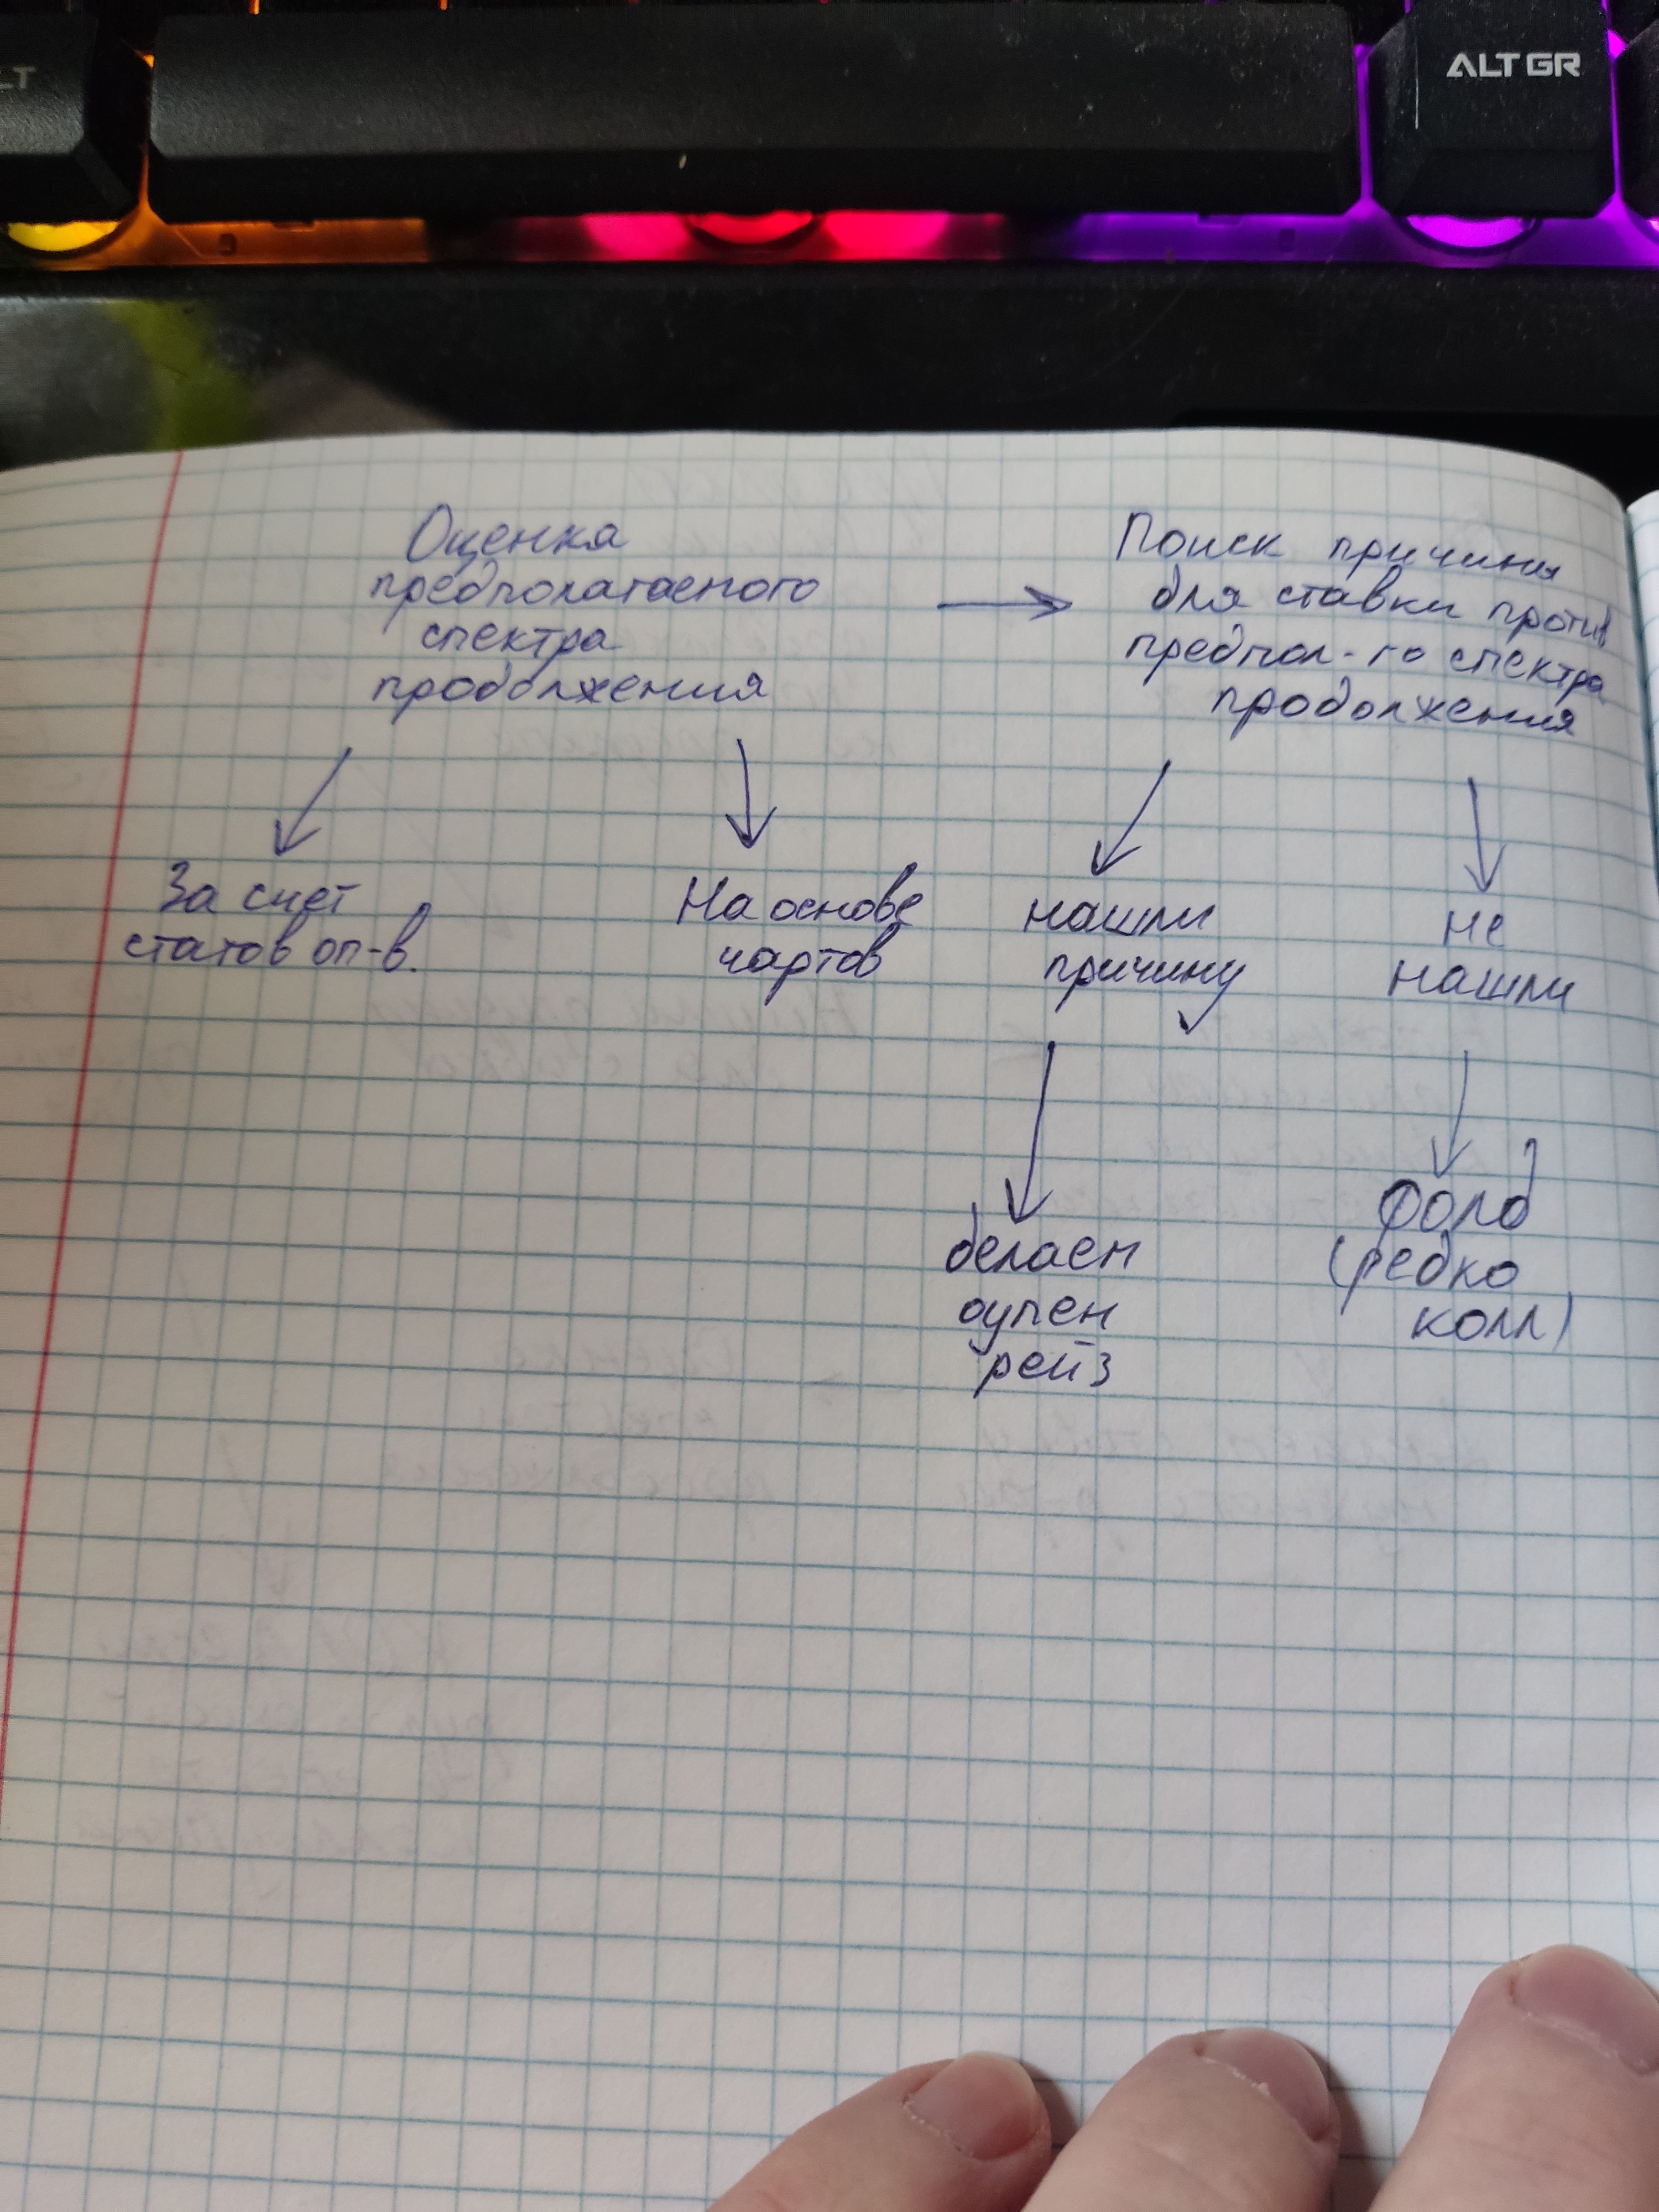 ALT GR
LT
Оценка
предполагаемого
спектра
продолжения
Поиск причины
для ставки против
предпол-го спектра
продолжения
За счет
статов оп-в.
На основе
чартов
нашли
причину
не
нашли
делаем
оупен
рейз
Фолд
(редко
колл)